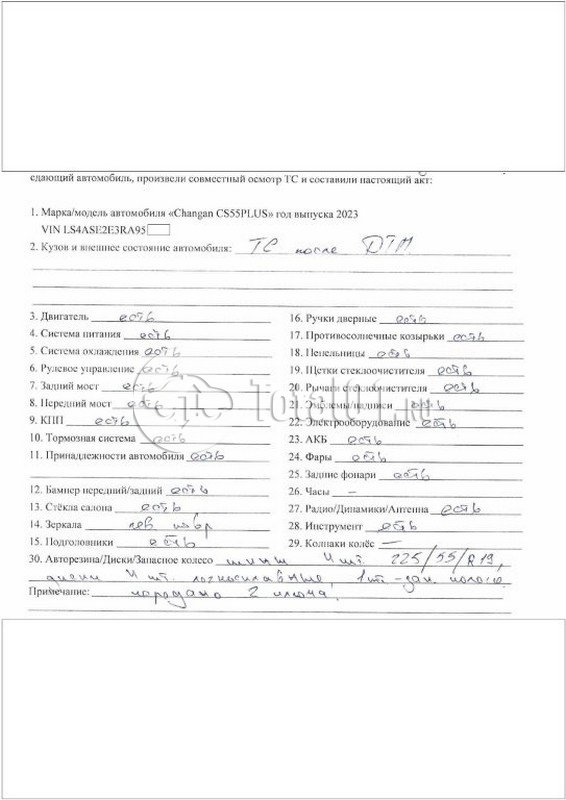 едающий автомобиль, произвели совместный осмотр ТС и составили настоящий акт:
1. Марка/модель автомобиля «Changan CS55PLUS» год выпуска 2023
VIN LS4ASE2E3RA95
2. Кузов и внешнее состояние автомобиля: ТС после ДТП
3. Двигатель есть
4. Система питания есть
5. Система охлаждения есть
6. Рулевое управление есть
7. Задний мост есть
8. Передний мост есть
9. КПП есть
10. Тормозная система есть
11. Принадлежности автомобиля есть
12. Бампер передний/задний есть
13. Стёкла салона есть
14. Зеркала лев повр
15. Подголовники есть
16. Ручки дверные есть
17. Противосолнечные козырьки есть
18. Пепельницы есть
19. Щетки стеклоочистителя есть
20. Рычаги стеклоочистителя есть
21. Эмблемы/надписи есть
22. Электрооборудование есть
23. АКБ есть
24. Фары есть
25. Задние фонари есть
26. Часы –
27. Радио/Динамики/Антенна есть
28. Инструмент есть
29. Колпаки колёс –
30. Авторезина/Диски/Запасное колесо шины 4 шт. 225/55/R19,
диски 4 шт. легкосплавные, 1 шт -
Примечание: передано 2 ключа.
Total01.ru